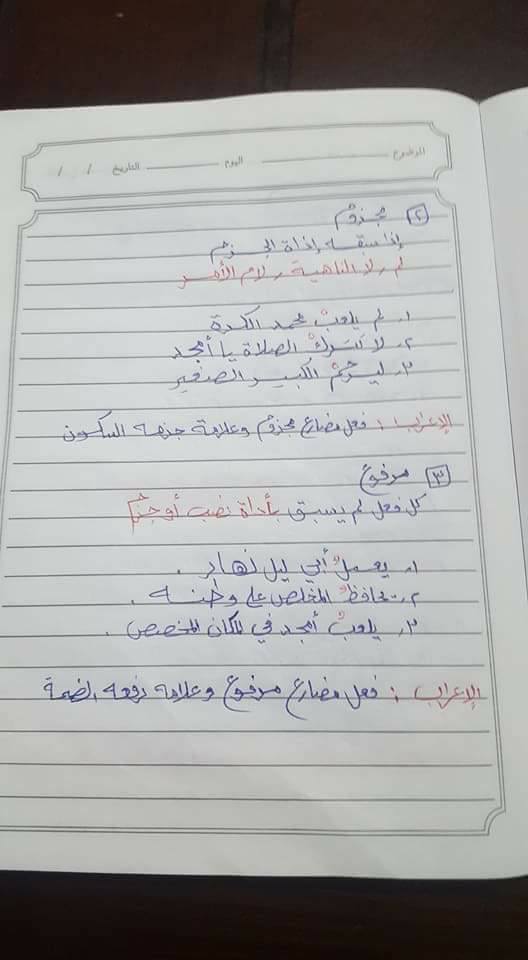 الموضوع اليوم التاريخ / /
٢ مجزوم
إذا سبقه إداة الجزم
لم، لا الناهية، لام الأمر
١. لم يلعبْ محمد الكرة
٢. لا تتركْ الصلاة يا أمجد
٣. ليرحمْ الكبير الصغير
الإعراب : فعل مضارع مجزوم وعلامة جزمه السكون
٣ مرفوع
كل فعل لم يسبق بأداة نصب أو جزم
١. يعملُ أبي ليل نهار.
٢. يحافظُ المخلص على وطنه.
٣. يلعبُ أمجد في المكان المخصص.
الإعراب : فعل مضارع مرفوع وعلامة رفعه الضمة